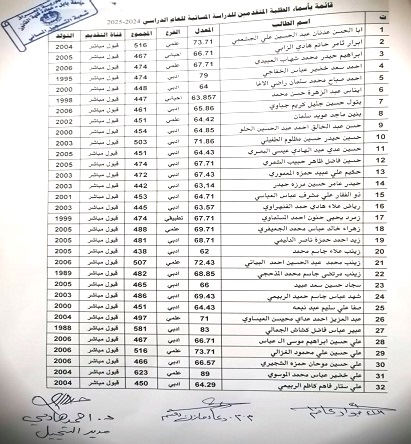 قائمة بأسماء الطلبة المتقدمين للدراسة المسائية للعام الدراسي 2024-2025
ت اسم الطالب المعدل الفرع المجموع قناة التقديم التولد
1 ابا الحسن عدنان عبد الحسين علي 73.71 علمي 516 قبول مباشر 2004
2 ابرار ثامر حاتم هادي 66.71 احيائي 467 قبول مباشر 2005
3 ابراهيم حيدر محمد شهاب العبيدي 67.71 ادبي 474 قبول مباشر 2006
4 احمد سعد خضير عباس الخفاجي 79 ادبي قبول مباشر 1995
5 احمد صباح محمد سلمان راضي 64 ادبي 448 قبول مباشر
6 ايناس عبد الزهرة حسن محمد 63.857 احيائي 447 قبول مباشر 1998
7 بتول حسين جليل كريم 65.86 ادبي 461 قبول مباشر 2006
8 بنين ماجد عويد سلمان 64.42 علمي 451 قبول مباشر 2002
9 حسين عبد الخالق احمد عبد الحسين الحلو 64.85 ادبي 454 قبول مباشر
10 حسين حيدر حسين مظلوم الطفيلي 71.86 ادبي 503 قبول مباشر 2003
11 حسين عدي عبد الهادي عيسى 64.43 ادبي 451 قبول مباشر 2005
12 حسين فاضل ظاهر حبيب الشمري 67.71 ادبي 474 قبول مباشر 2005
13 حكيم علي عبيد حمزه المعموري 67.43 ادبي 472 قبول مباشر 2003
14 حيدر عامر حسين ميرزه حيدر 63,14 ادبي 442 قبول مباشر 2003
15 ذو الفقار علي مشرف عباس العباسي 64.71 ادبي 453 قبول مباشر 2001
16 رياض علاء هادي حمد 63.57 ادبي 445 قبول مباشر 2006
17 زمرد يحيى حنون احمد 67.71 تطبيقي 474 قبول مباشر 1999
18 زهراء خالد عباس محمد الجميعري 69.71 علمي 488 قبول مباشر 2005
19 زيد احمد حمزة ناصر الدليمي 68.71 ادبي 481 قبول مباشر 2005
20 زينب علاء جاسم محمد 62 ادبي قبول مباشر 2005
21 زينب محمد عبد الحسين احمد البياتي 72.43 علمي 507 قبول مباشر 2006
22 زينب مرتضى جاسم محمد 68.85 ادبي 482 قبول مباشر 1989
23 سجاد حسين سعد عبيد 66 ادبي 465 قبول مباشر 2005
24 شهد عباس جاسم حميد الربيعي 69.43 ادبي 486 قبول مباشر 2003
25 صفا علي سليم عبد 64.43 ادبي 451 قبول مباشر 2000
26 عبد العزيز احمد عداي محيسن العيساوي 71 علمي 497 قبول مباشر 2004
27 عبير عباس فاضل كشاش الجمالي 83 ادبي 581 قبول مباشر 1988
28 علي حسين ابراهيم موسى ال عباس 66.71 ادبي 467 قبول مباشر 2006
29 علي حسين علي محمود الغزالي 73.71 علمي 516 قبول مباشر 2006
30 علي حسين موحان حمزه الشجيري 66.57 ادبي 466 قبول مباشر 2006
31 علي خضير عباس محمد الموسوي 89 علمي 623 قبول مباشر 2004
32 علي ستار فاهم كاظم الربيعي 64.29 ادبي 450 قبول مباشر 2006
مدير التسجيل